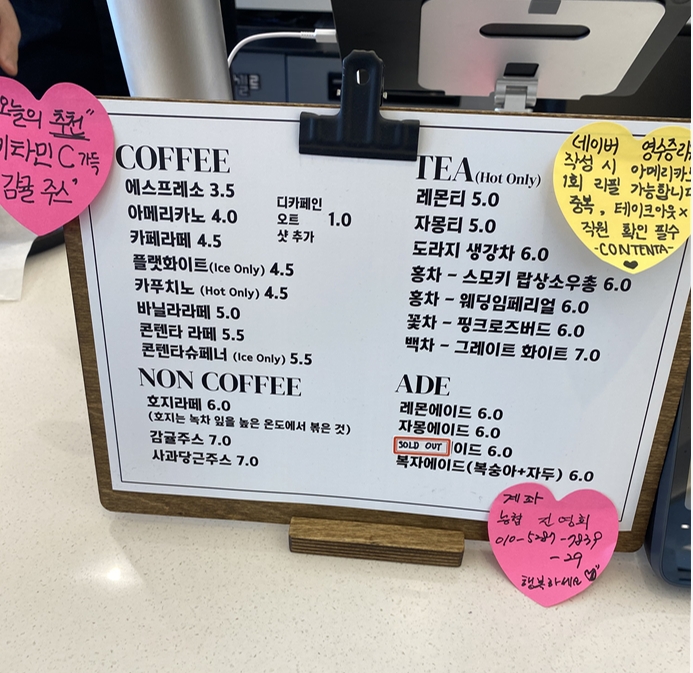 오늘의 추천"
비타민 C 가득
감귤 주스"
COFFEE
에스프레소 3.5
아메리카노 4.0
카페라떼 4.5
플랫화이트(Ice Only) 4.5
카푸치노 (Hot Only) 4.5
바닐라라떼 5.0
콘텐타 라떼 5.5
콘텐타슈페너 (Ice Only) 5.5
디카페인
오트 1.0
샷 추가
NON COFFEE
호지라떼 6.0
(호지는 녹차 잎을 높은 온도에서 볶은 것)
감귤주스 7.0
사과당근주스 7.0
TEA (Hot Only)
레몬티 5.0
자몽티 5.0
도라지 생강차 6.0
홍차 - 스모키 랍상소우총 6.0
홍차 - 웨딩임페리얼 6.0
꽃차 - 핑크로즈버드 6.0
백차 - 그레이트 화이트 7.0
ADE
레몬에이드 6.0
자몽에이드 6.0
SOLD OUT 이드 6.0
복자에이드(복숭아+자두) 6.0
네이버 영수증리
작성 시 아메리카노
1회 리필 가능합니다
중복, 테이크아웃 x
직원 확인 필수
-CONTENTA-
계좌
농협
010-5287-7839
-29
행복하세요